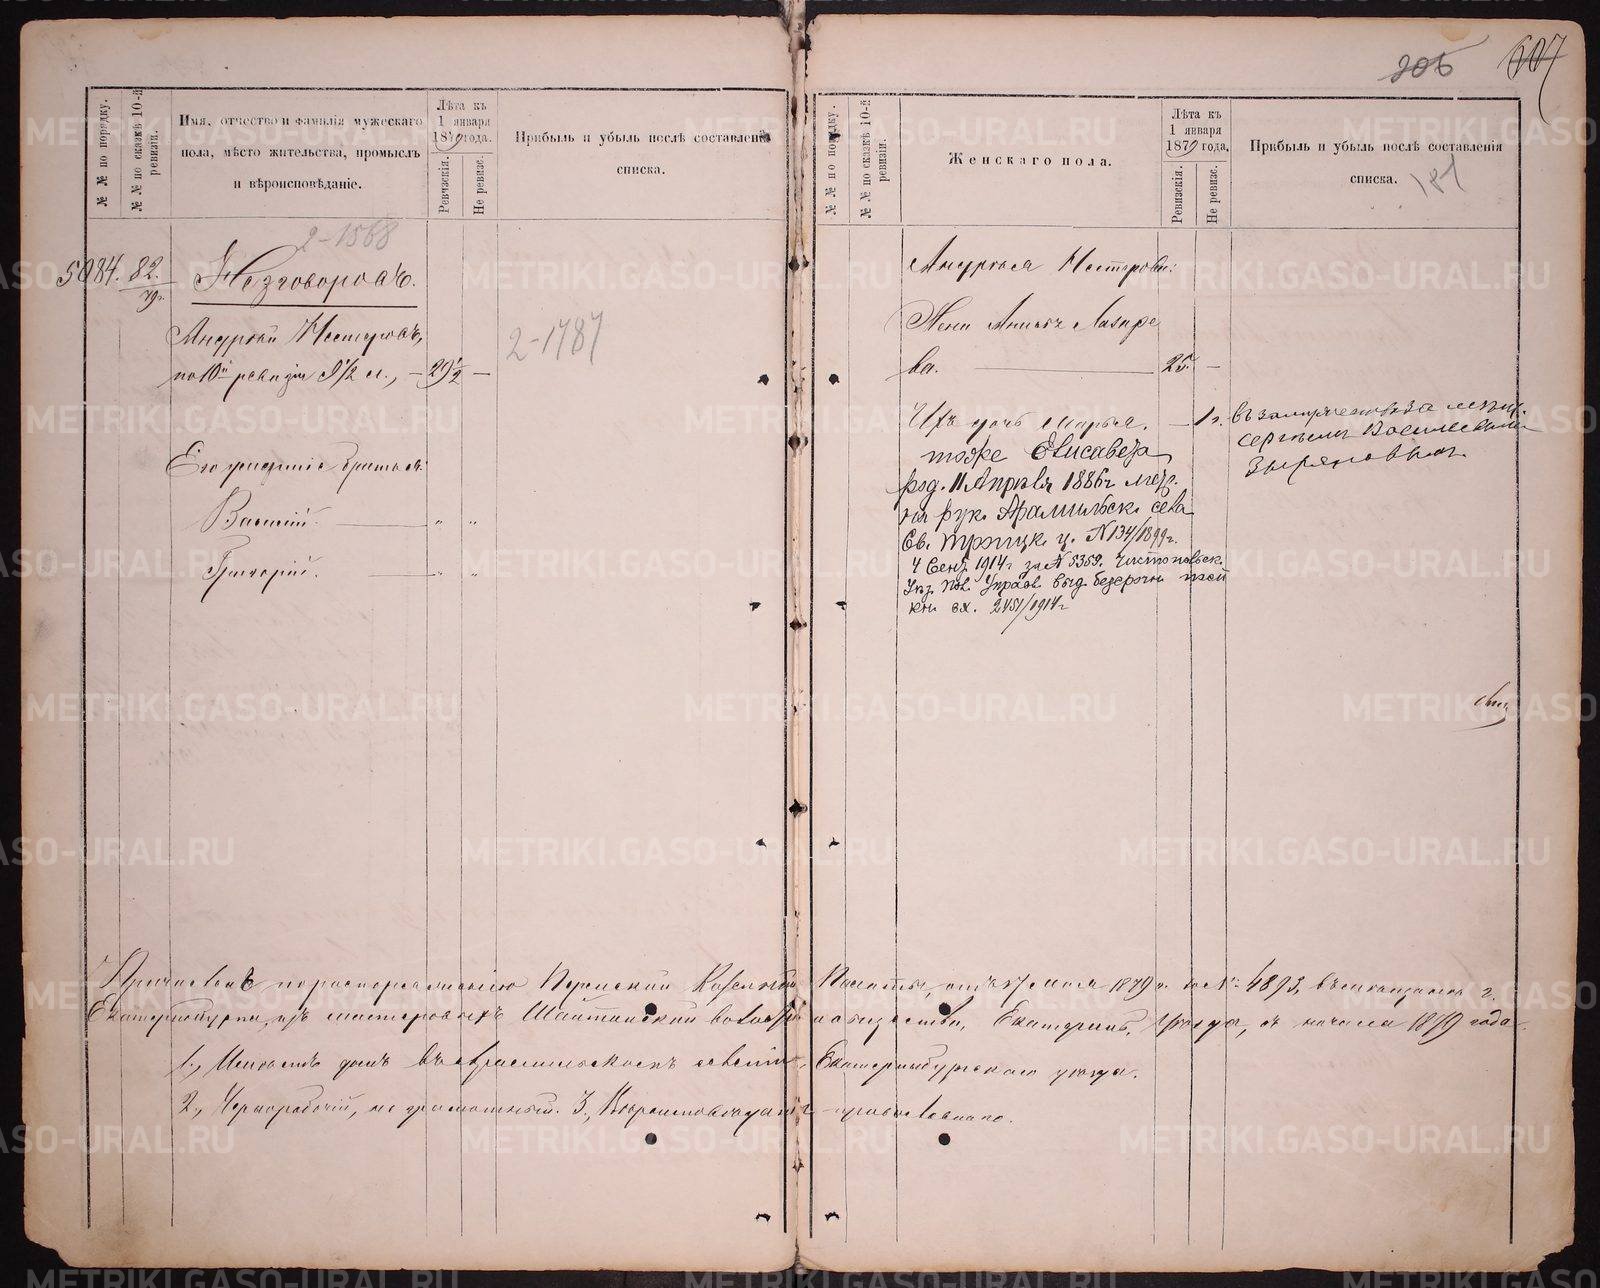 205 607
№ № по порядку.
№ № по сказкѣ 10-й ревизіи.
Имя, отчество и фамилія мужескаго
пола, мѣсто жительства, промыслъ
и вѣроисповѣданіе.
Лѣта къ
1 января
1879 года.
Ревизскія.
Не ревизс.
Прибыль и убыль послѣ составленія
списка.
2-1568
5084. 82.
79 г.
Незговоровъ.
Андрей Нестеровъ,
по 10й ревизіи 9 1/2 л., — 29 1/2 —
2-1787
Его родные братья:
Василій. — " "
Григорій. — " "
№ № по порядку.
№ № по сказкѣ 10-й ревизіи.
Женскаго пола.
Лѣта къ
1 января
1879 года.
Ревизскія.
Не ревизс.
Прибыль и убыль послѣ составленія
списка.
181
Андрея Нестерова:
Жена Лазаре
ва. — 25. —
Ихъ дочь Марья. — 1 г.
въ замужествѣ за
Сергѣемъ Васильевымъ
Зыряновымъ.
тоже Елисавета
род. 11 Апрѣля 1886 г. метр.
Арамильск. села
Св. Троицк. ц. № 134/1899 г.
4 Сент. 1914 г. за № 5359.
Упр. выд. безсрочн.
кн. вх. 2451/1914 г.
Причисленъ по распоряженію Пермской Казенной Палаты, отъ 17 Мая 1879 г. за № 4893, въ мѣщане г.
Екатеринбурга, изъ мастеровыхъ Шайтанской волости и общества, Екатеринб. уѣзда, съ начала 1879 года.
1., Имѣетъ домъ въ Арамильскомъ селеніи, Екатеринбургскаго уѣзда.
2., Чернорабочій, не грамотный. 3., Вѣроисповѣданія православнаго.
METRIKI.GASO-URAL.RU